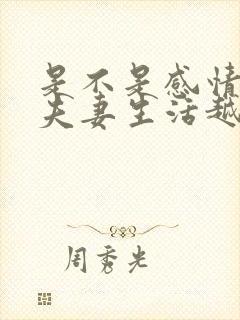 是不是感情
夫妻生活越
周秀光